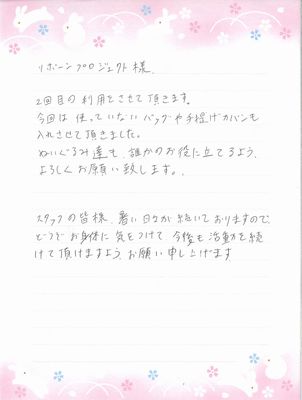 リボーンプロジェクト様、
2回目の利用をさせて頂きます。
今回は使っていないバッグや手提げカバンも
入れさせて頂きました。
ぬいぐるみ達も、誰かのお役に立てるよう、
よろしくお願い致します。
スタッフの皆様、暑い日々が続いておりますので、
どうぞお身体に気をつけて、今後も活動を続
けて頂けますよう、お願い申し上げます